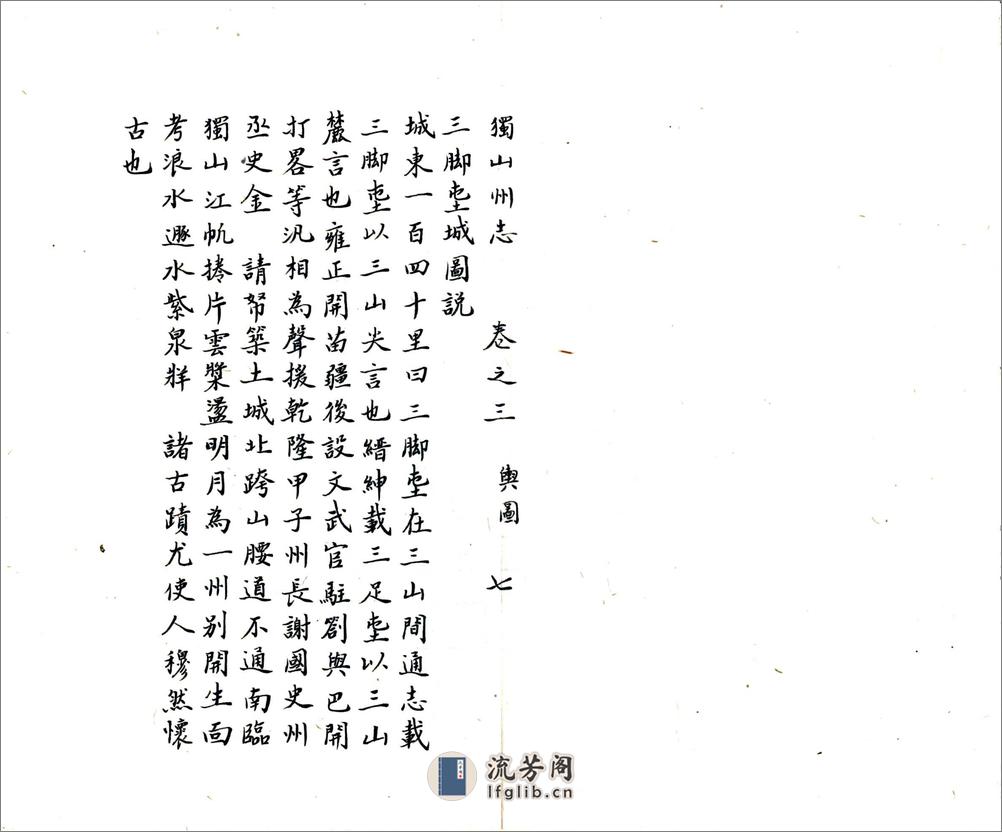 獨山州志　卷之三　輿圖　七
三脚坉城圖説
城東一百四十里曰三脚坉在三山間通志載
三脚坉以三山尖言也縉紳載三足坉以三山
麓言也雍正開苗疆後設文武官駐劄與巴開
打畧等汛相為聲援乾隆甲子州長謝國史州
丞史金　請帑築土城北跨山腰道不通南臨
獨山江帆捲片雲槳盪明月為一州别開生面
考浪水遯水紫泉牂　諸古蹟尤使人穆然懷
古也
流芳阁
lfglib.cn